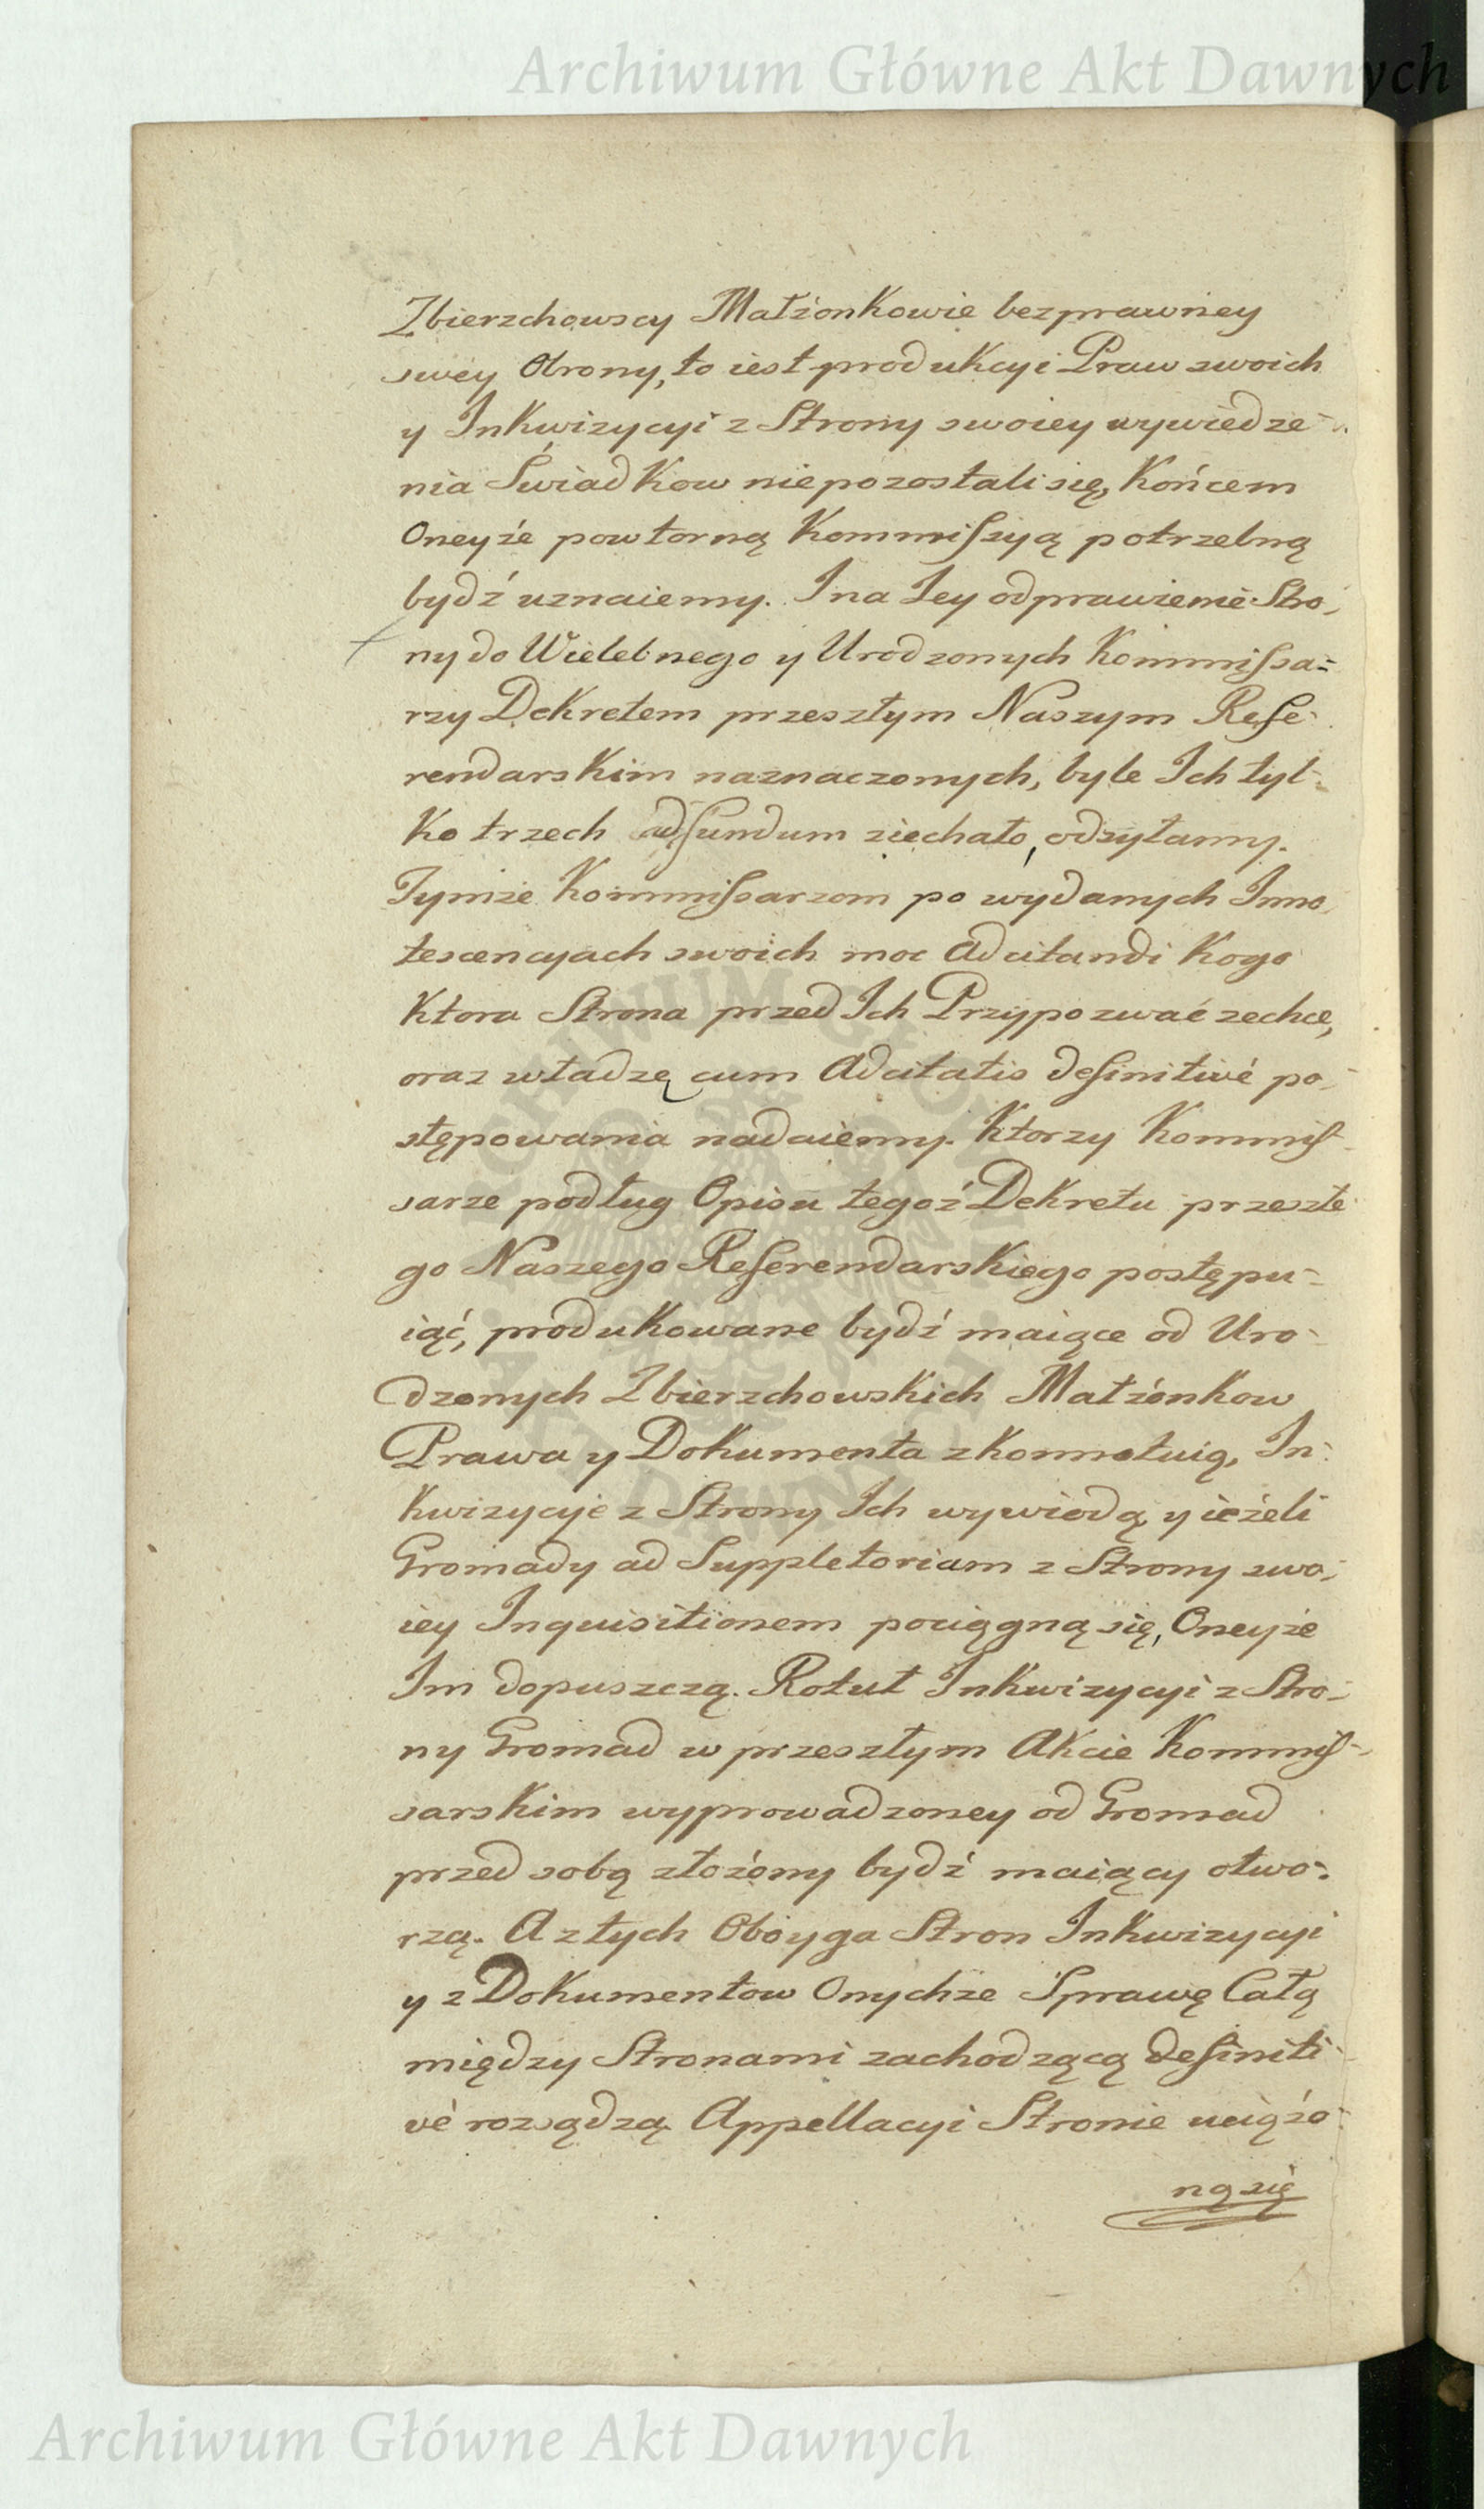 Archiwum Główne Akt Dawnych
Zbierzchowscy Małżonkowie bezprawney
swey Obrony, to iest produkcyi Praw swoich
y Inkwizycyi z Strony swoiey wywiedze-
nia Świadkow niepozostali się, Końcem
Oneyże powtorną Kommissyą potrzebną
bydź uznaiemy. I na Jey odprawienie Stro-
ny do Wielebnego y Urodzonych Kommissa=
rzy Dekretem przeszłym Naszym Refe-
rendarskim naznaczonych, byle Ich tyl-
ko trzech ad fundum ziechało, odsyłamy.
Tymże Kommissarzom po wydanych Inno-
tescencyach swoich moc adcitandi Kogo
Ktora Strona przed Ich Przypozwać zechce,
oraz władzę cum adcitatis definitivé po-
stępowania nadaiemy. Ktorzy Kommis-
sarze podług Opisu tegoż Dekretu przeszłe-
go Naszego Referendarskiego postępu-
iąć, produkowane bydź maiące od Uro-
dzonych Zbierzchowskich Małżonkow
Prawa y Dokumenta zkonnotuią, In-
kwizycyje z Strony Ich wywiodą, y ieżeli
Gromady ad Suppletoriam z Strony swo-
iey Inquisitionem pociągną się, Oneyże
Im dopuszczą. Rotuł Inkwizycyi z Stro-
ny Gromad w przeszłym Akcie Kommis-
sarskim wyprowadzoney od Gromad
przed sobą złożony bydź maiący otwo-
rzą. A z tych Oboyga Stron Inkwizycyi
y z Dokumentow Onychże Sprawę Całą
między Stronami zachodzącą definiti-
vè rozsądzą. Appellacyi Stronie uciążo-
ną się
Archiwum Główne Akt Dawnych